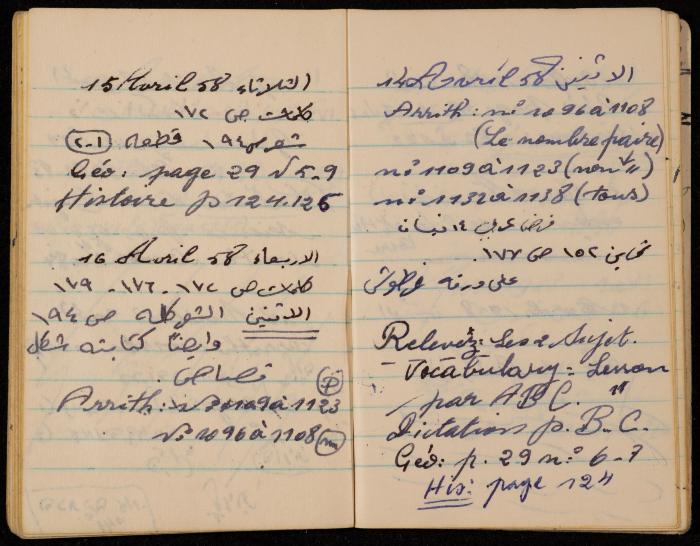 14 Avril 58 الاثنين
Arrith: n° 1096 à 1108
(Le nombre paire)
n° 1109 à 1123 (non 〃)
n° 1132 à 1138 (tous)
عربي ١٤ نيسان
١٥٢ ص ١٧٧.
على ورقة
Relevez: Les 2 Sujet.
- Vocabulary = Lesson
par ABC. "
Dictations p. B. C.
Géo: p. 29 n° 6-7
His: page 124
15 Avril 58 الثلاثاء
كلمات ص ١٧٢
شعر ص ١٩٤ قطعة (٢-١)
Géo: page 29 √ 5-9
Histoire p 124.126
16 Avril 58 الاربعاء
كلمات ص ١٧٢ - ١٧٦ - ١٧٩
الاثنين ص ١٩٤
وايضا كتابة
Arrith: n° 1109 à 1123 (P)
n° 1096 à 1108